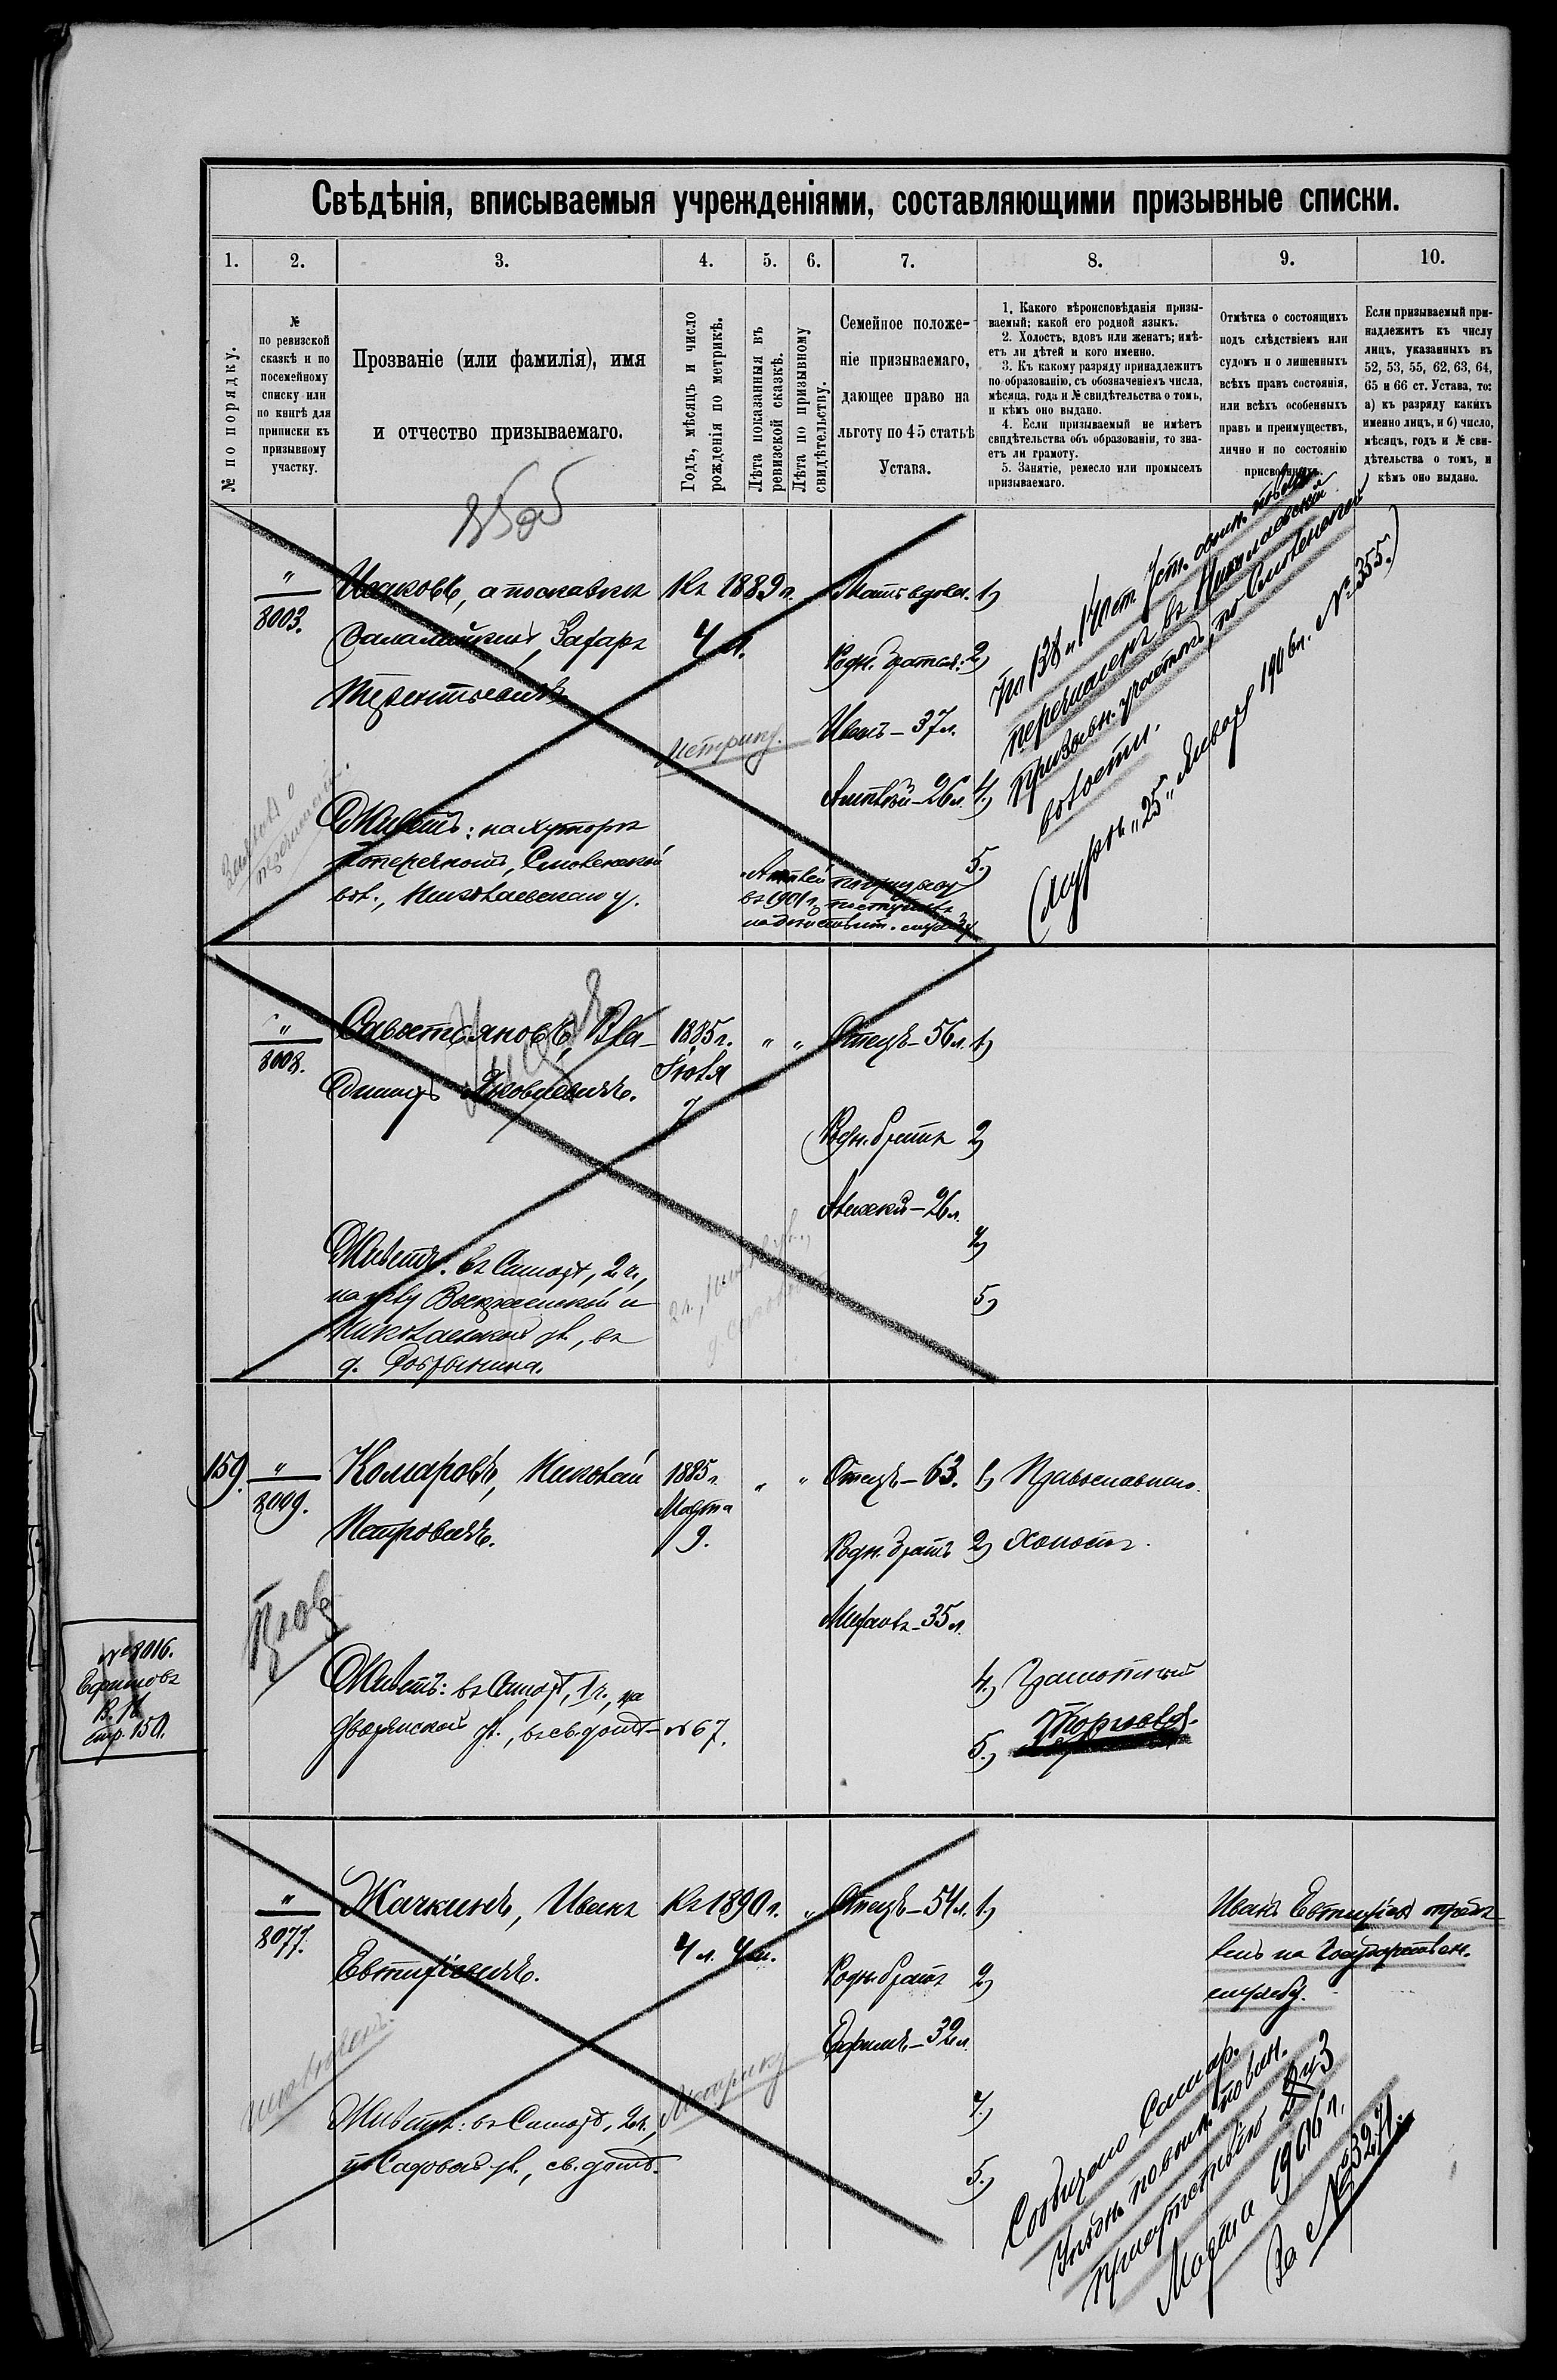 Свѣдѣнія, вписываемыя учрежденіями, составляющими призывные списки.
1. 2. 3. 4. 5. 6. 7. 8. 9. 10.
№ по порядку.
№
по ревизской
сказкѣ и по
посемейному
списку или
по книгѣ для
приписки къ
призывному
участку.
Прозваніе (или фамилія), имя
и отчество призываемаго.
Годъ, мѣсяцъ и число
рожденія по метрикѣ.
Лѣта показанныя въ
ревизской сказкѣ.
Лѣта по призывному
свидѣтельству.
Семейное положе-
ніе призываемаго,
дающее право на
льготу по 45 статьѣ
Устава.
1. Какого вѣроисповѣданія призы-
ваемый; какой его родной языкъ.
2. Холостъ, вдовъ или женатъ; имѣ-
етъ ли дѣтей и кого именно.
3. Къ какому разряду принадлежитъ
по образованію, съ обозначеніемъ числа,
мѣсяца, года и № свидѣтельства о томъ,
и кѣмъ оно выдано.
4. Если призываемый не имѣетъ
свидѣтельства объ образованіи, то зна-
етъ ли грамоту.
5. Занятіе, ремесло или промыселъ
призываемаго.
Отмѣтка о состоящихъ
подъ слѣдствіемъ или
судомъ и о лишенныхъ
всѣхъ правъ состоянія,
или всѣхъ особенныхъ
правъ и преимуществъ,
лично и по состоянію
присвоенныхъ.
Если призываемый при-
надлежитъ къ числу
лицъ, указанныхъ въ
52, 53, 55, 62, 63, 64,
65 и 66 ст. Устава, то:
а) къ разряду какихъ
именно лицъ, и б) число,
мѣсяцъ, годъ и № сви-
дѣтельства о томъ, и
кѣмъ оно выдано.
"
8003.
Исаковъ, а по отчиму
Захаръ
Терентьевичъ
Къ 1889 г.
4 л.
Мать вдова. 1)
Родн. братья: 2)
Иванъ – 37 л.
Алексѣй – 26 л. 4)
5)
Метрику.
Живетъ: на хуторѣ
Поперечномъ, Смоленской
вол., Николаевскаго у.
въ 1901 г. поступилъ
на дѣйствит. службу
По 138 и 140 ст. Уст. о воин. повин.
перечисленъ въ Николаевскій
призывн. участокъ, по Смоленской
волости.
(Журн. „25„ Января 1906 г. № 355.)
"
8008.
Савостьяновъ, Вла-
димиръ Яковлевичъ.
1885 г.
Іюля
7
" "
Отецъ – 56 л. 1)
Родн. братъ 2)
Алексѣй – 26 л.
4)
5)
Живетъ: въ Самарѣ, 2 ч.,
на углу Воскресенской и
Николаевской ул., въ
д. Добрынина.
159.
"
8009.
Комаровъ, Николай
Петровичъ.
1885 г.
Марта
9.
" "
Отецъ – 63. 1) Православнаго.
Родн. братъ 2) Холостъ.
Михаилъ – 35 л.
Живетъ: въ Самарѣ, 1 ч., на
Дворянской ул., въ св. домѣ – № 67.
4.) Грамотный
5.) Торговля.
№ 8016.
Ефимовъ
В. И.
стр. 150.
"
8077.
Жачкинъ, Иванъ
Евтихіевичъ.
Къ 1890 г.
4 л. 4 м.
"
Отецъ – 54 л. 1)
Родн. братъ 2)
Ефимъ – 32 л.
4)
5.)
Метрику
Живетъ: въ Самарѣ, 2 ч.,
по Садовой ул., св. домъ.
Иванъ Евтихіевъ
на Государствен.
службу.
Сообщено Самар.
Уѣздн. по воин. повин.
присутствію
Марта 1906 г.
За № 3271.